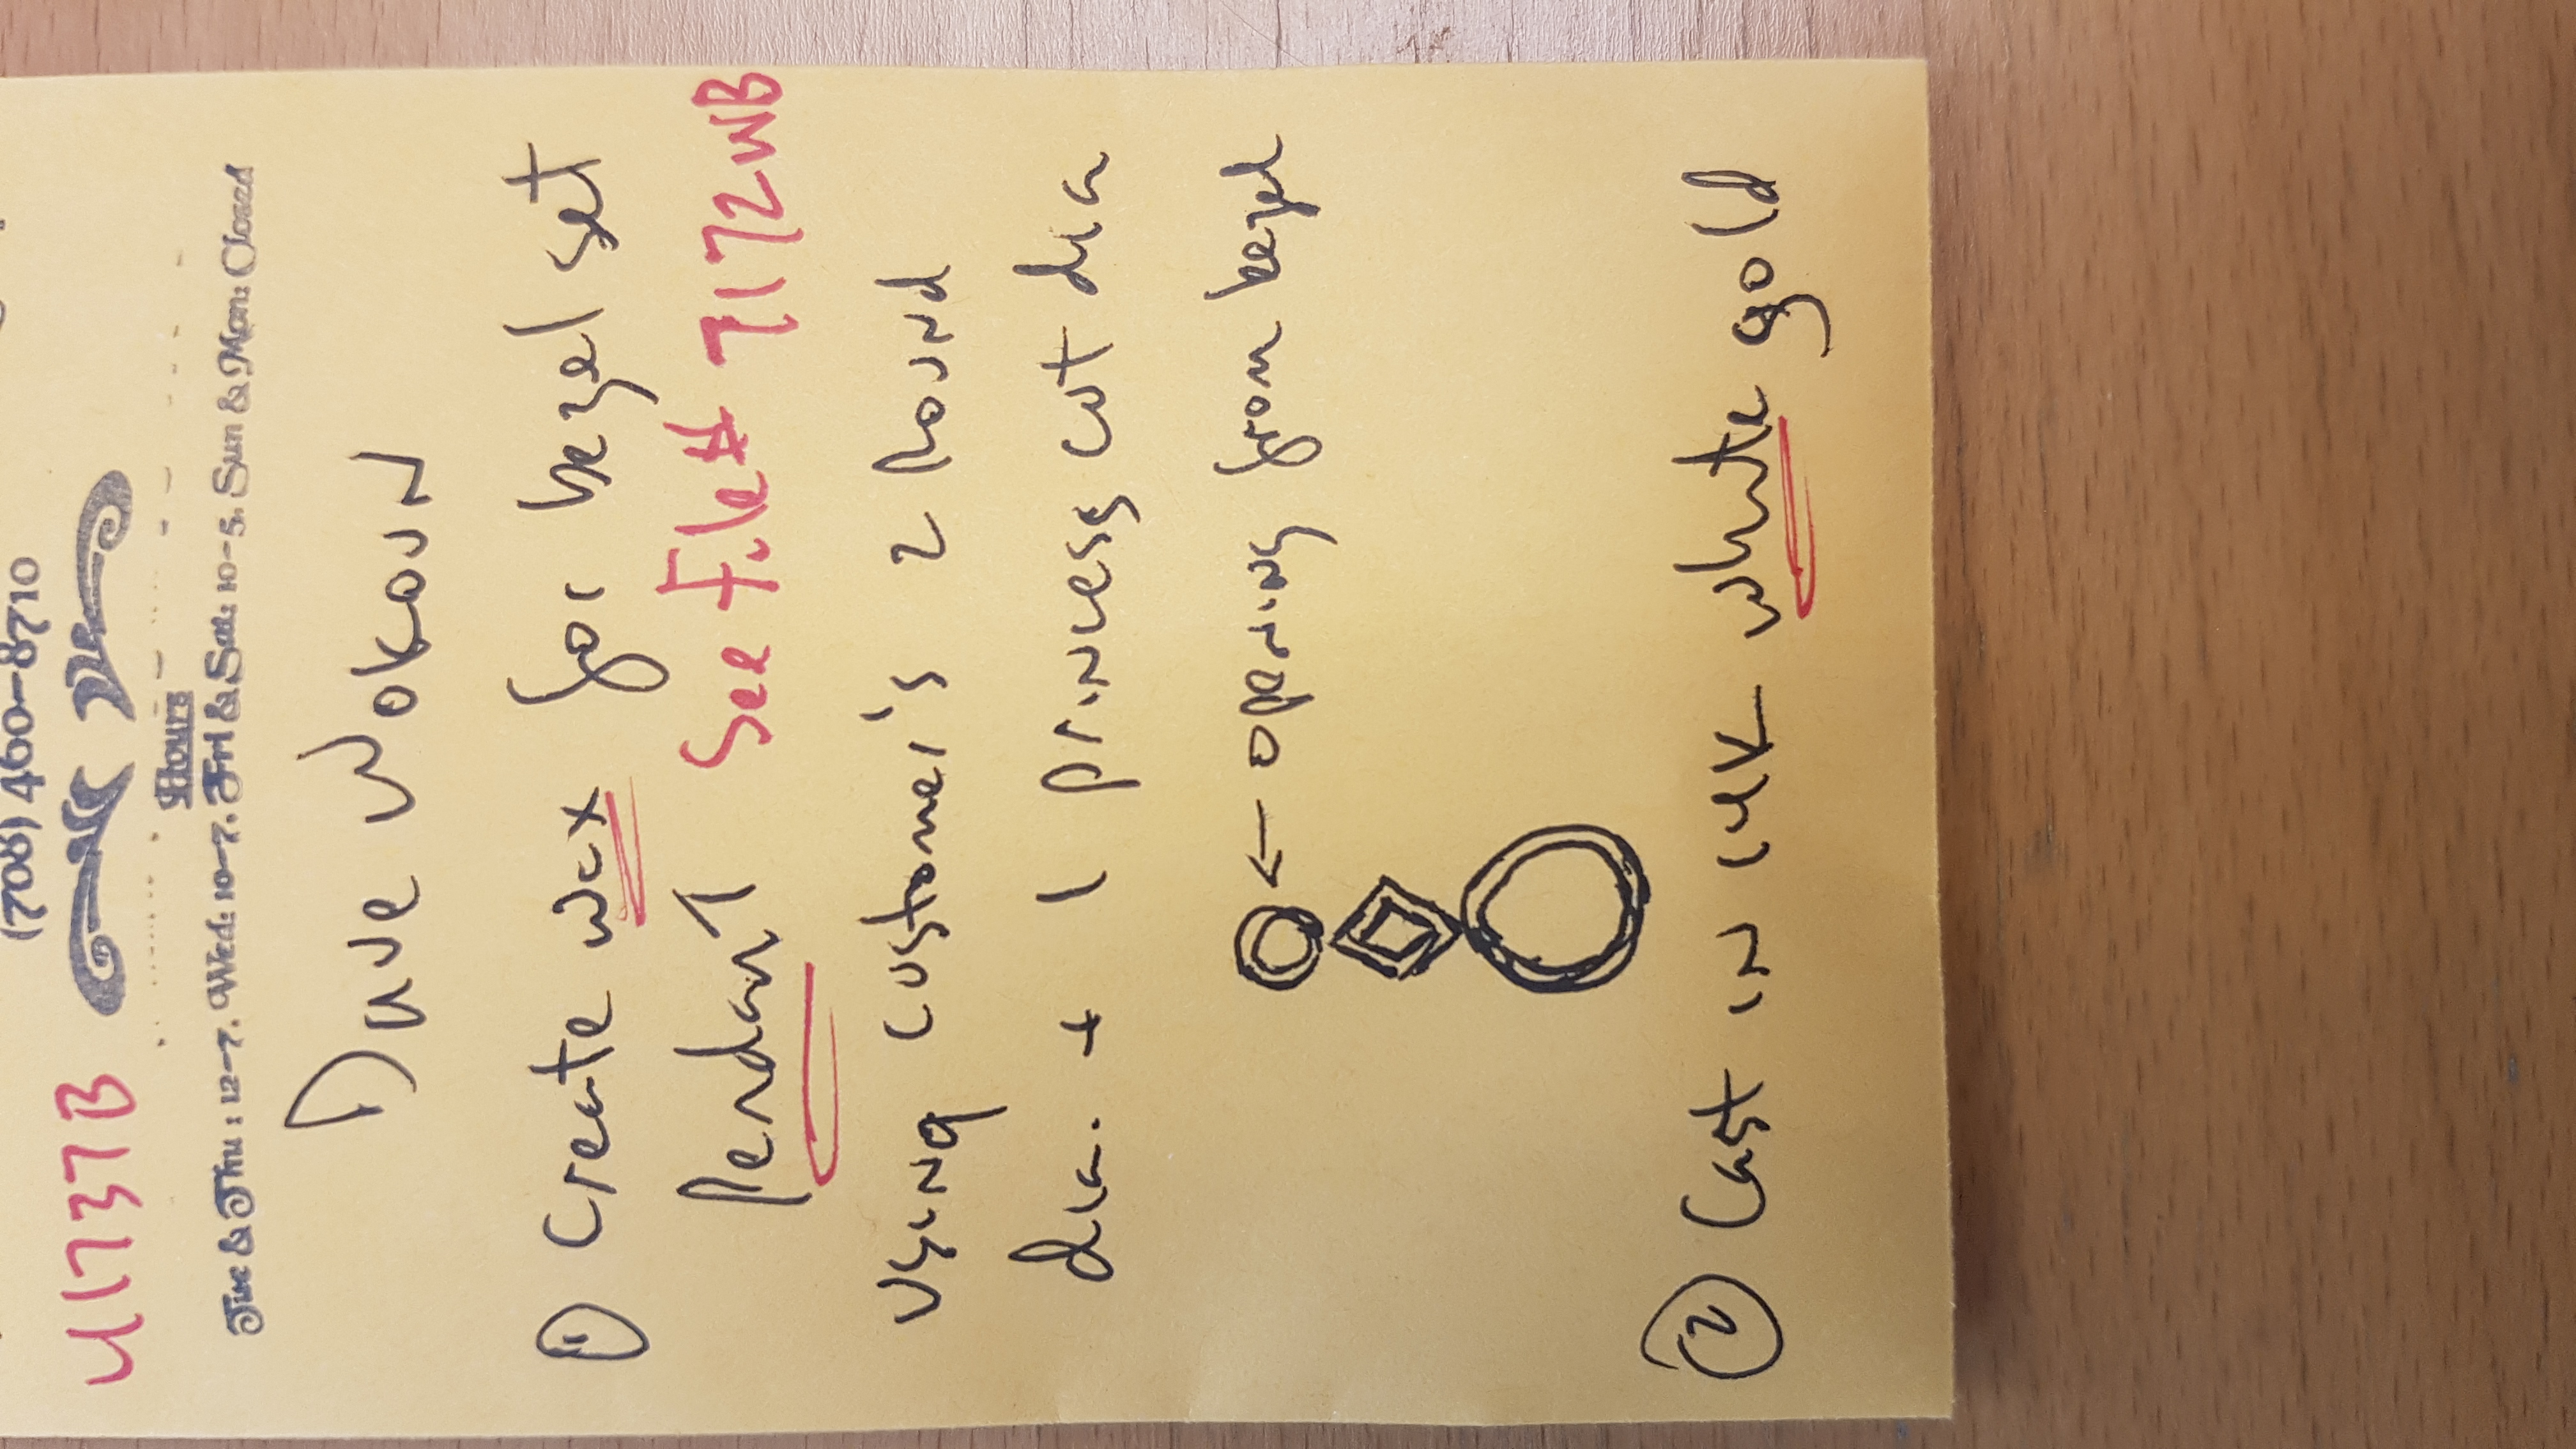 (708) 460-8710
41737B
Hours
Tue & Thu : 12-7. Wed: 10-7. Fri & Sat: 10-5. Sun & Mon: Closed
Dave Wokoun
① Create wax for bezel set
Pendant See File# 7172WB
Using customer's 2 Round
dia. + 1 princess cut dia
← opening from bezel
② Cast in 14K white gold